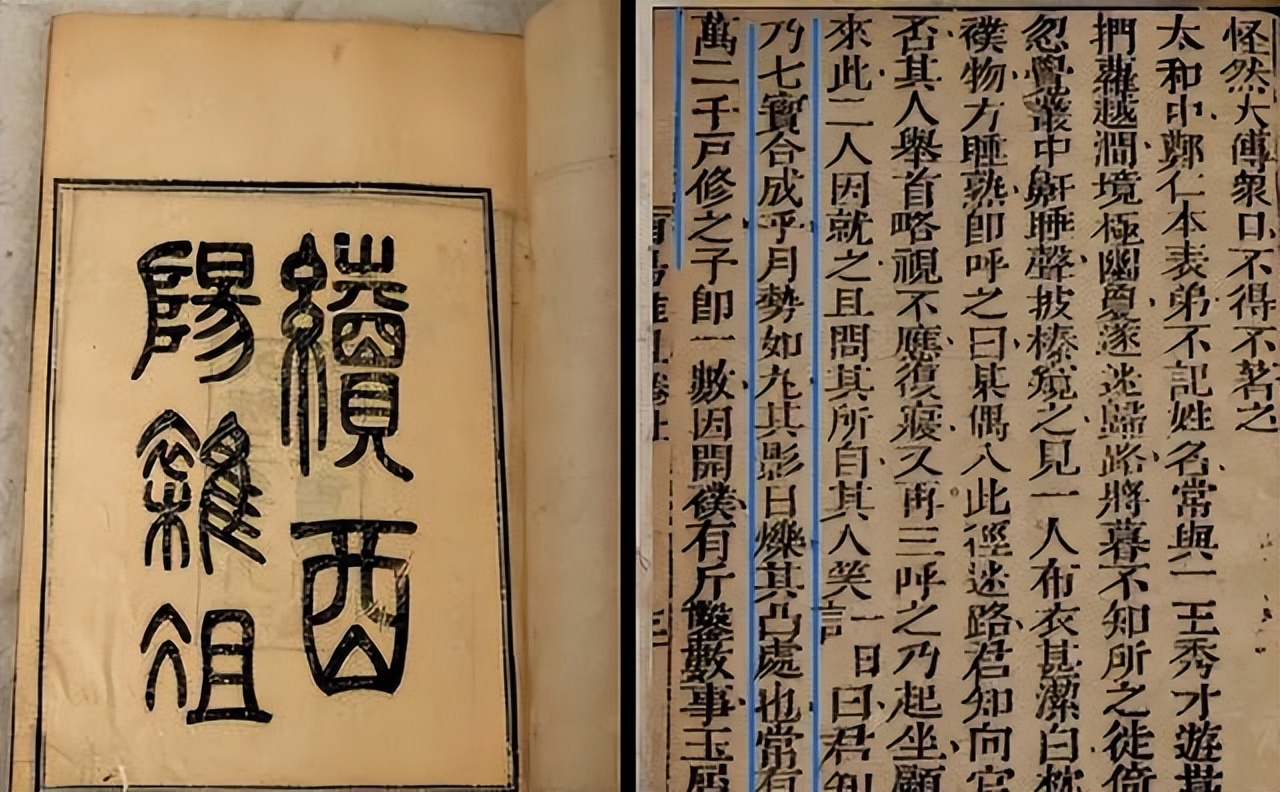 續酉
陽雜俎
怪然大傳衆口不得不著之
太和中鄭仁本表弟不記姓名常與一王秀才遊嵩
捫蘿越澗境極幽夐遂迷歸路將暮不知所之徙倚
忽覺叢中鼾睡聲披榛窺之見一人布衣甚潔白枕
襆物方睡熟即呼之曰某偶入此徑迷路君知向官
否其人舉首略視不應復寢又再三呼之乃起坐顧
來此二人因就之且問其所自其人笑言一日曰君知
乃七寶合成乎月勢如丸其影日爍其凸處也常有
萬二千戶修之子即一數因開襆有斤鑿數事玉屑